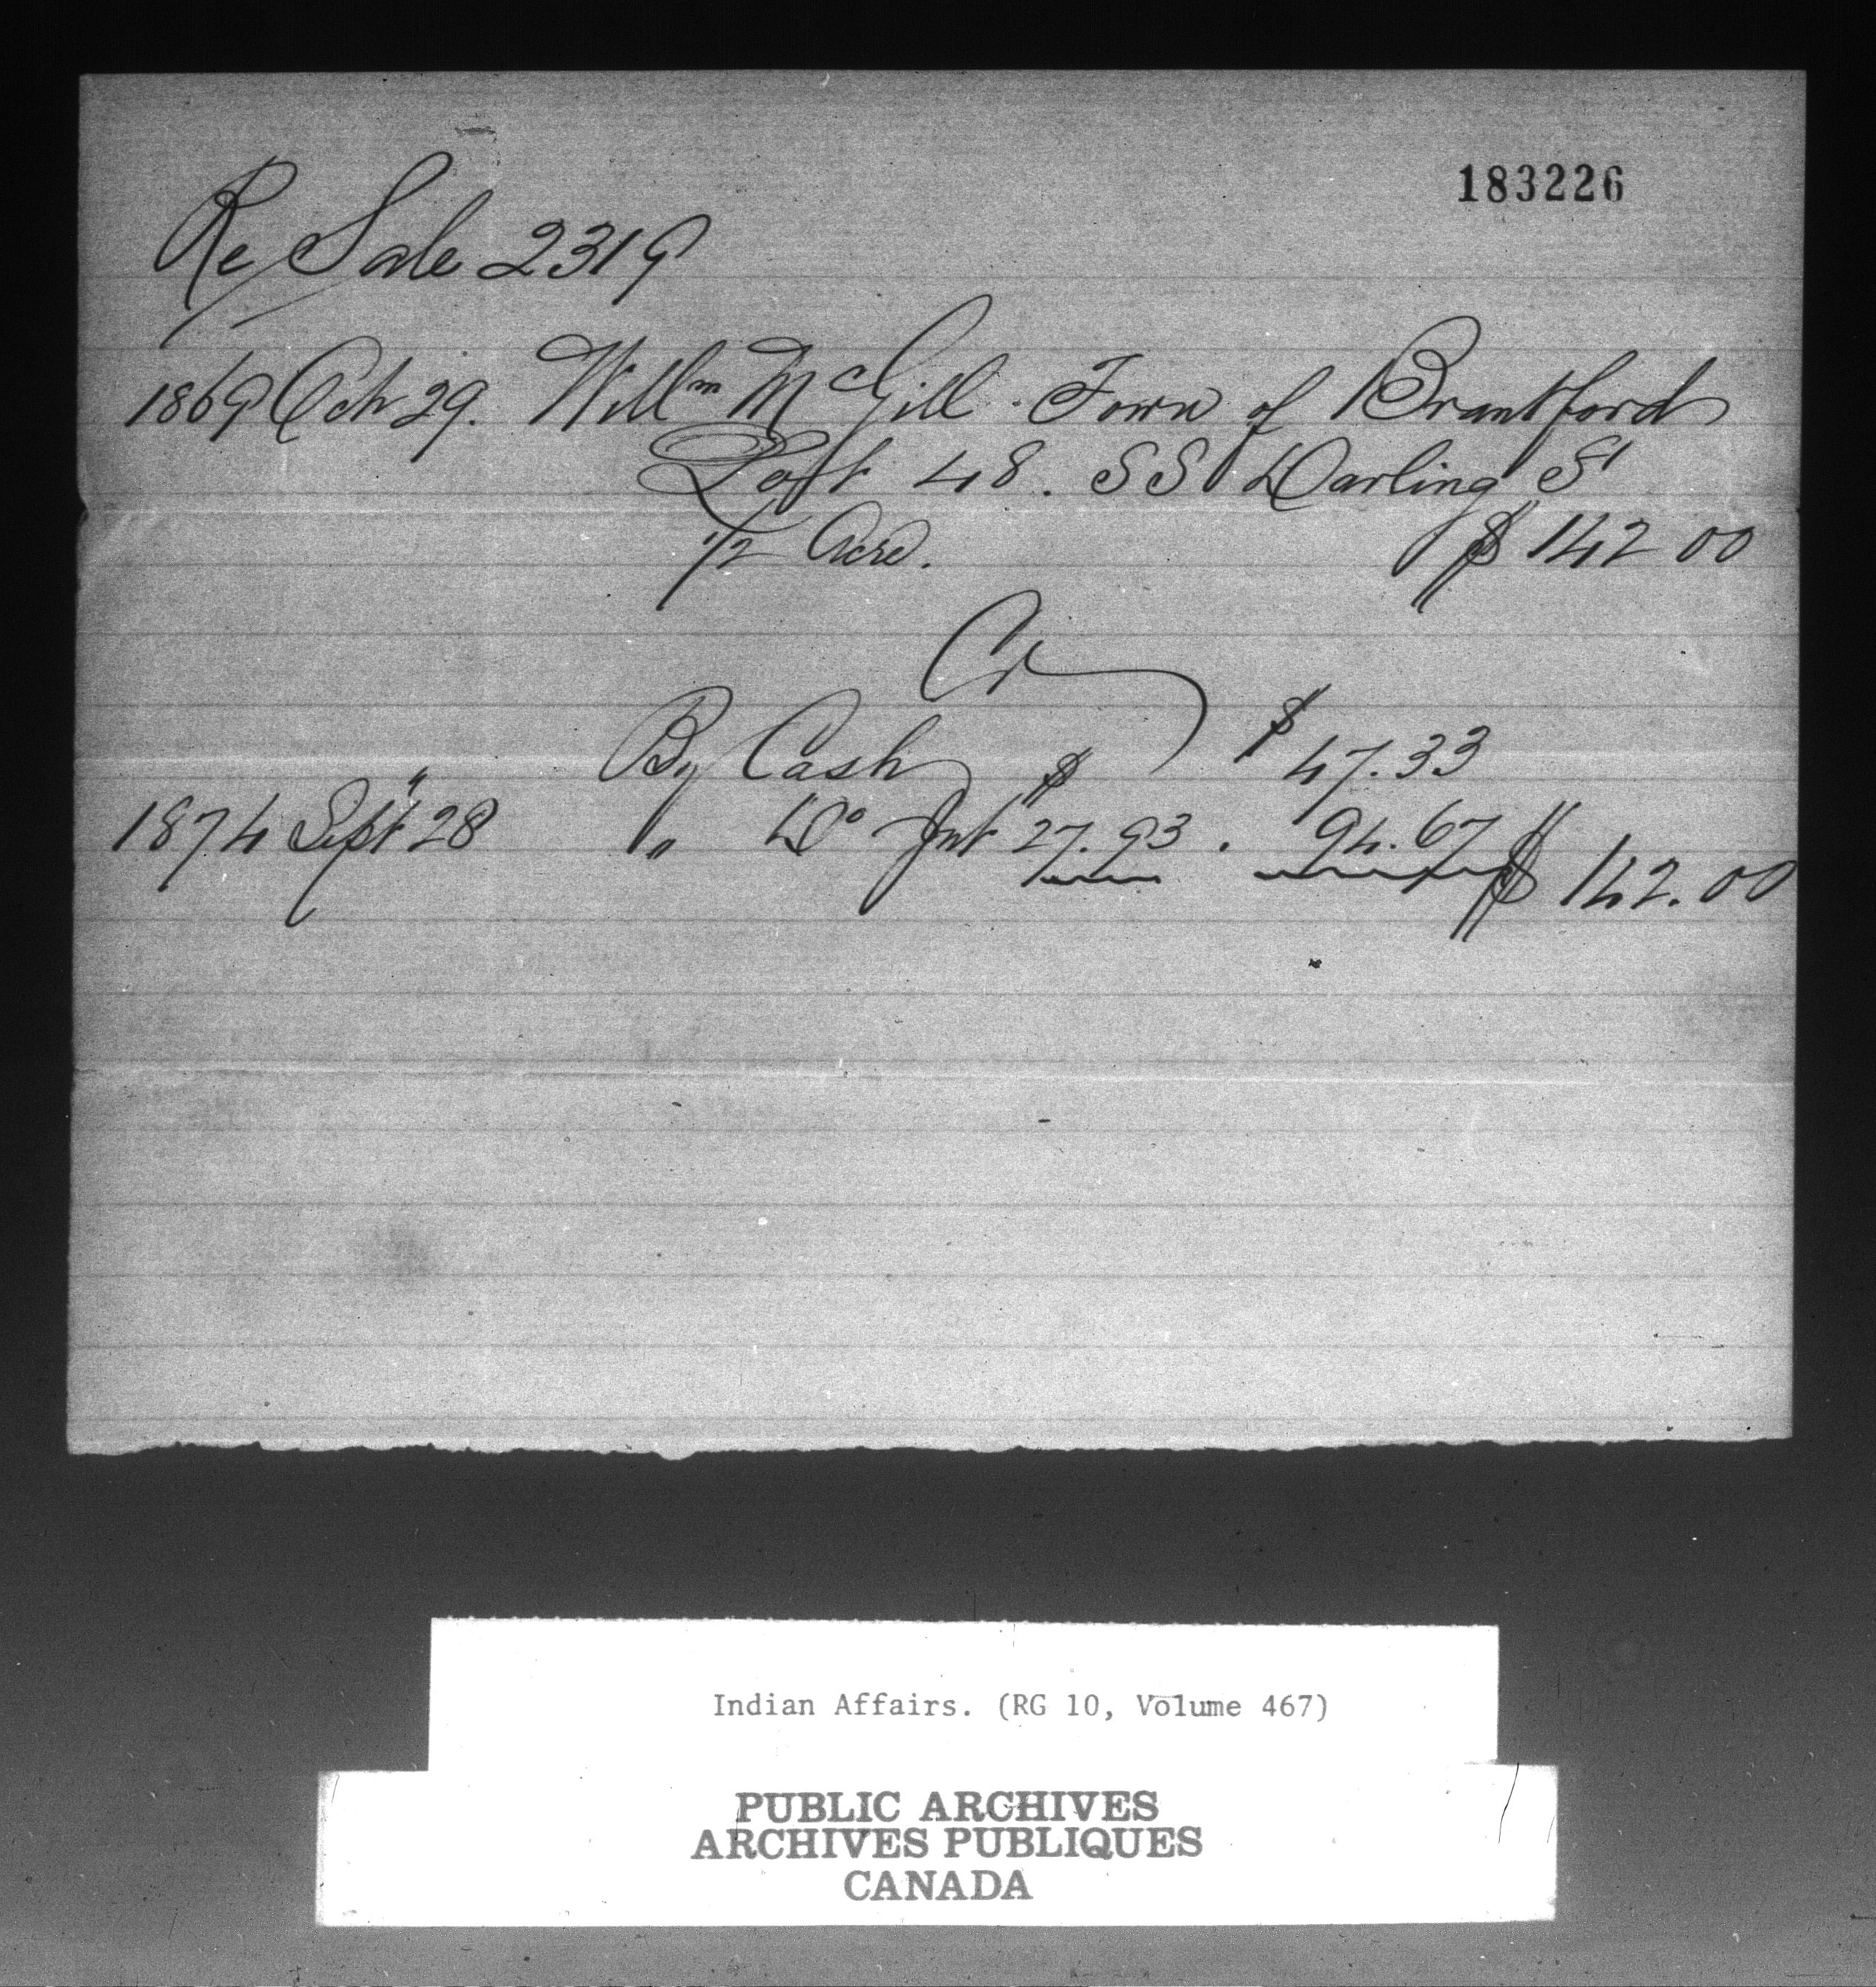 183226
Re Sale 2319
1869 Oct 29. Willm McGill. Town of Brantford
Lot 48. SS Darling St
1/2 Acre. $ 142 00
Cr
By Cash $ 47.33
1874 Sept 28 " Do Int $ 27.93. 94.67 $ 142.00
Indian Affairs. (RG 10, Volume 467)
PUBLIC ARCHIVES
ARCHIVES PUBLIQUES
CANADA